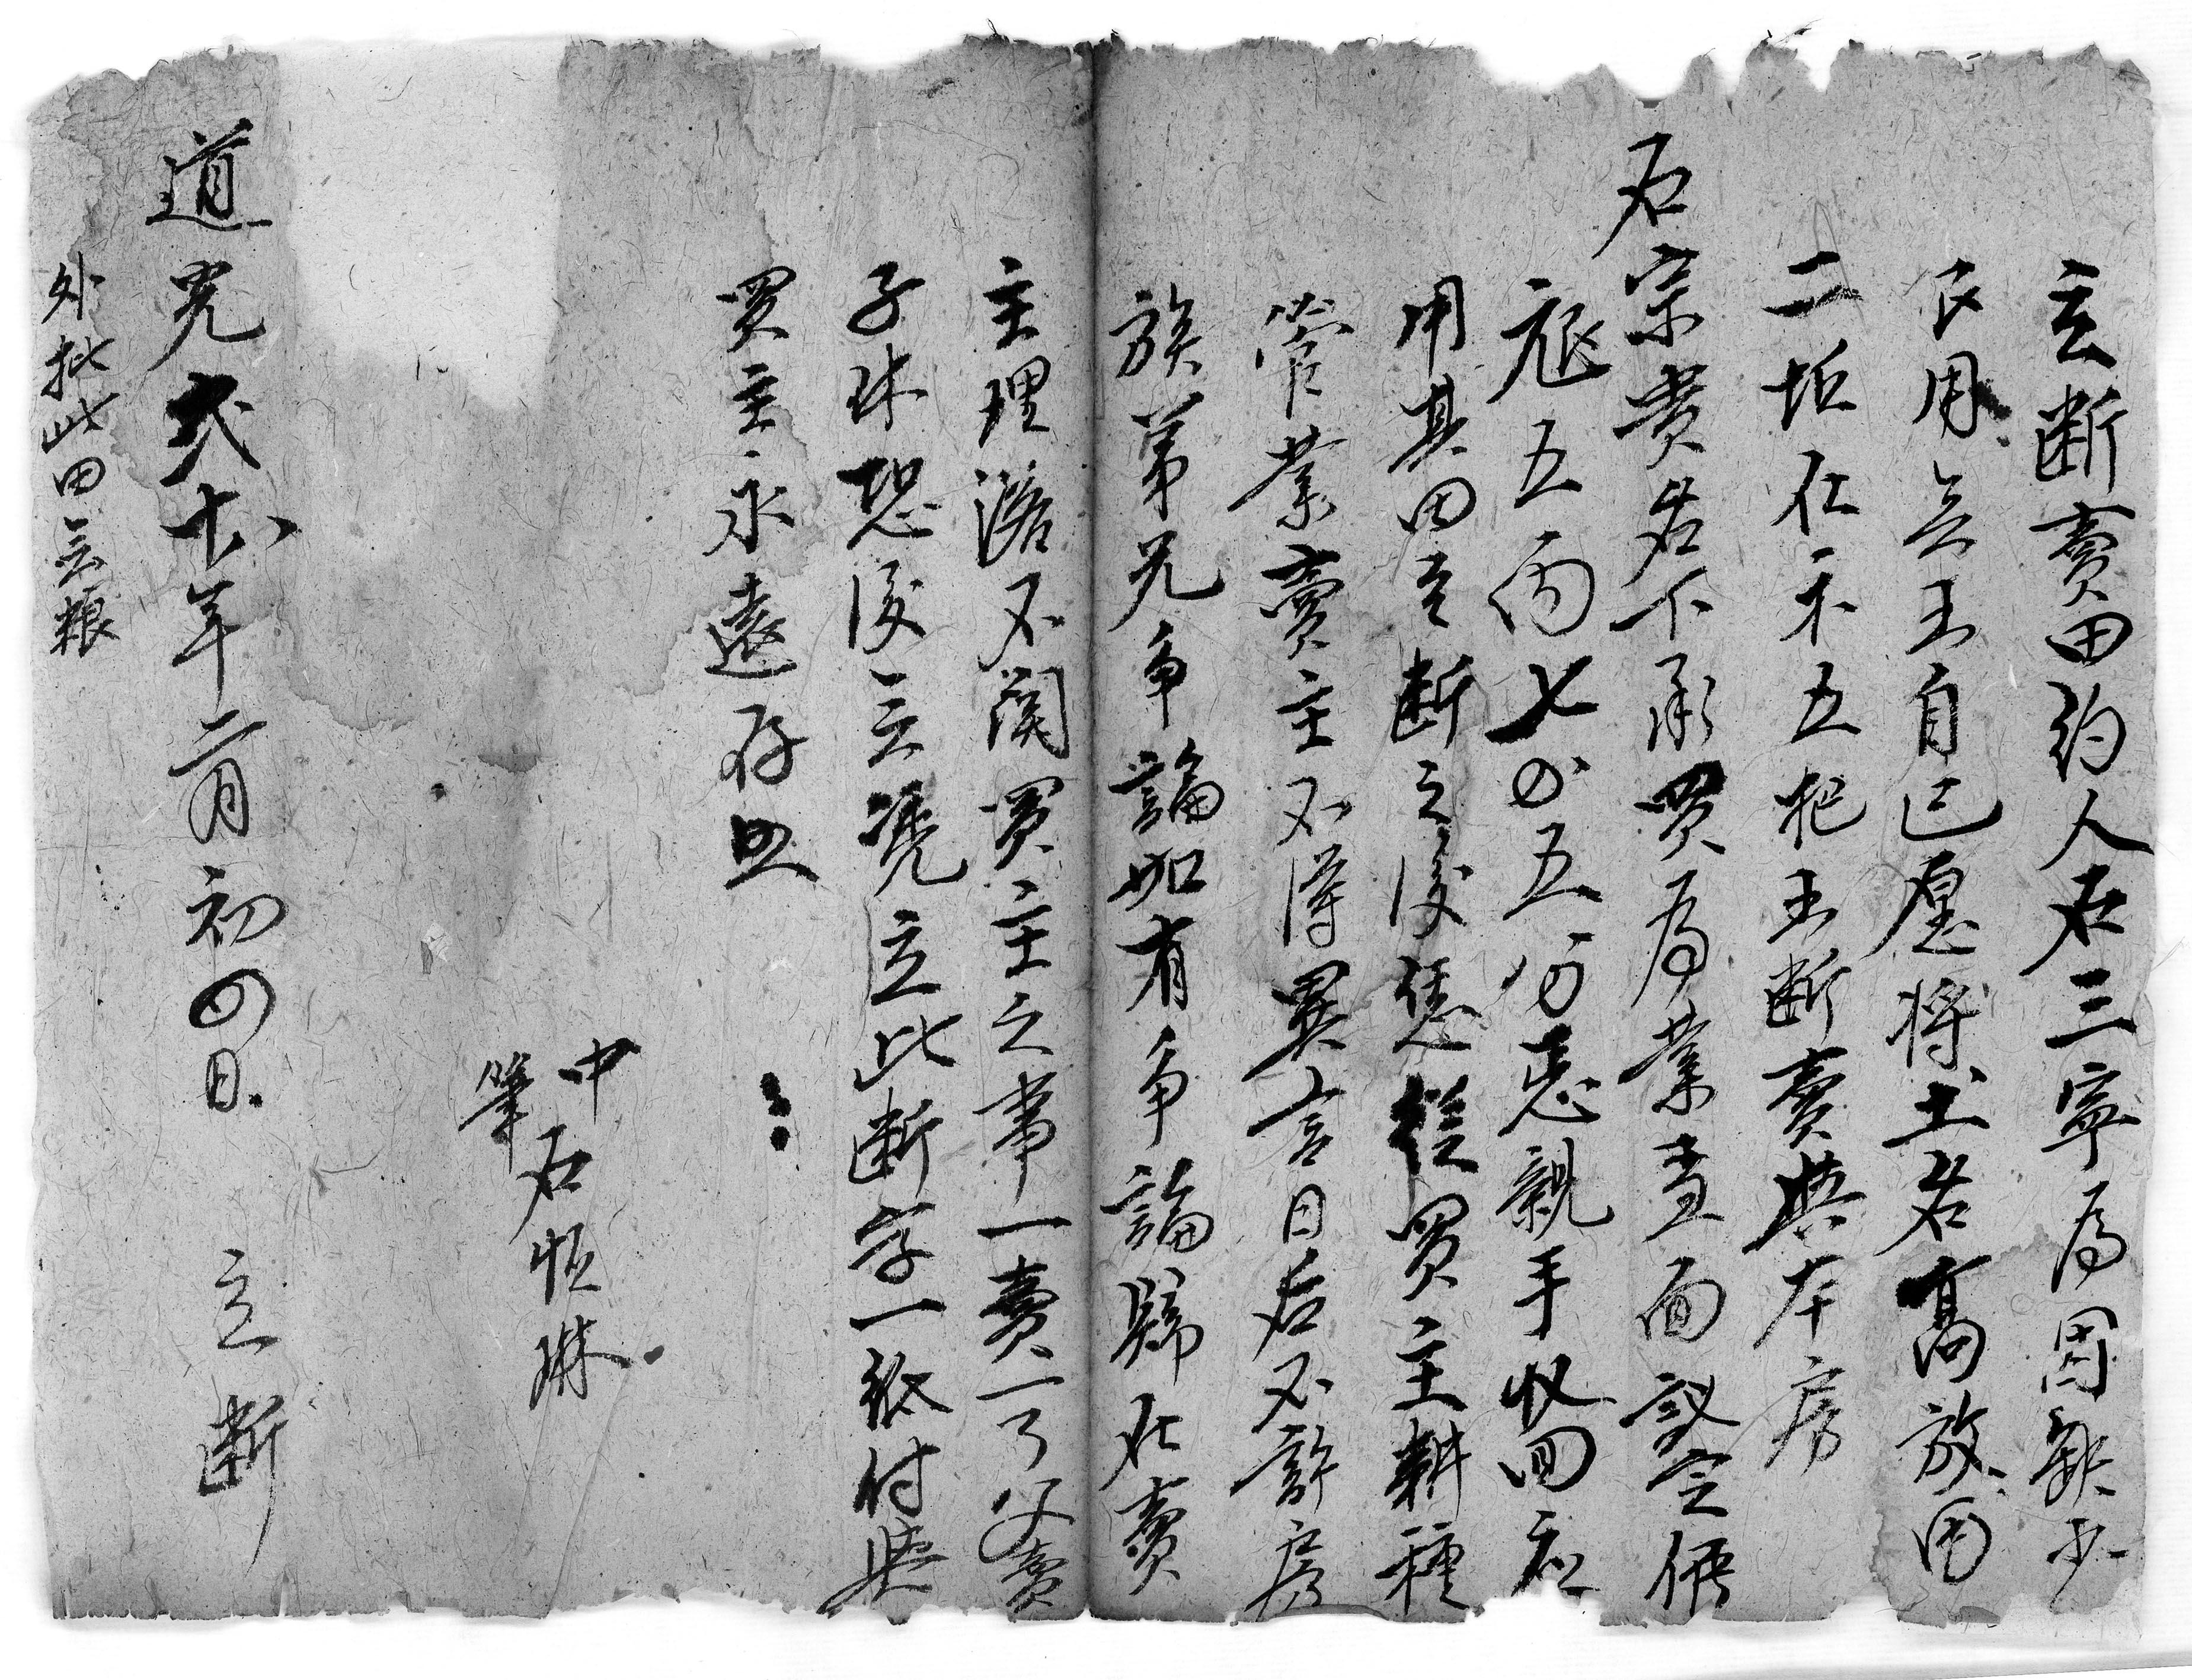 立断賣田約人石三寧為因缺少
良用無出自己愿將土名高放田
二坵在禾五把出断賣與本房
石宗貴名下承買為業當面議定價
五両七錢五分悉親手收回
用其田自断之後恁從買主耕種
管業賣主不得異言日后不許房
族弟兄争論如有争論歸在賣
主理落不関買主之事一賣一了父賣
子休恐後無凴立此断字一紙付與
買主永遠存照
中
筆 石恒琳
道光弍十八年二月初四日 立断
外批此田無粮